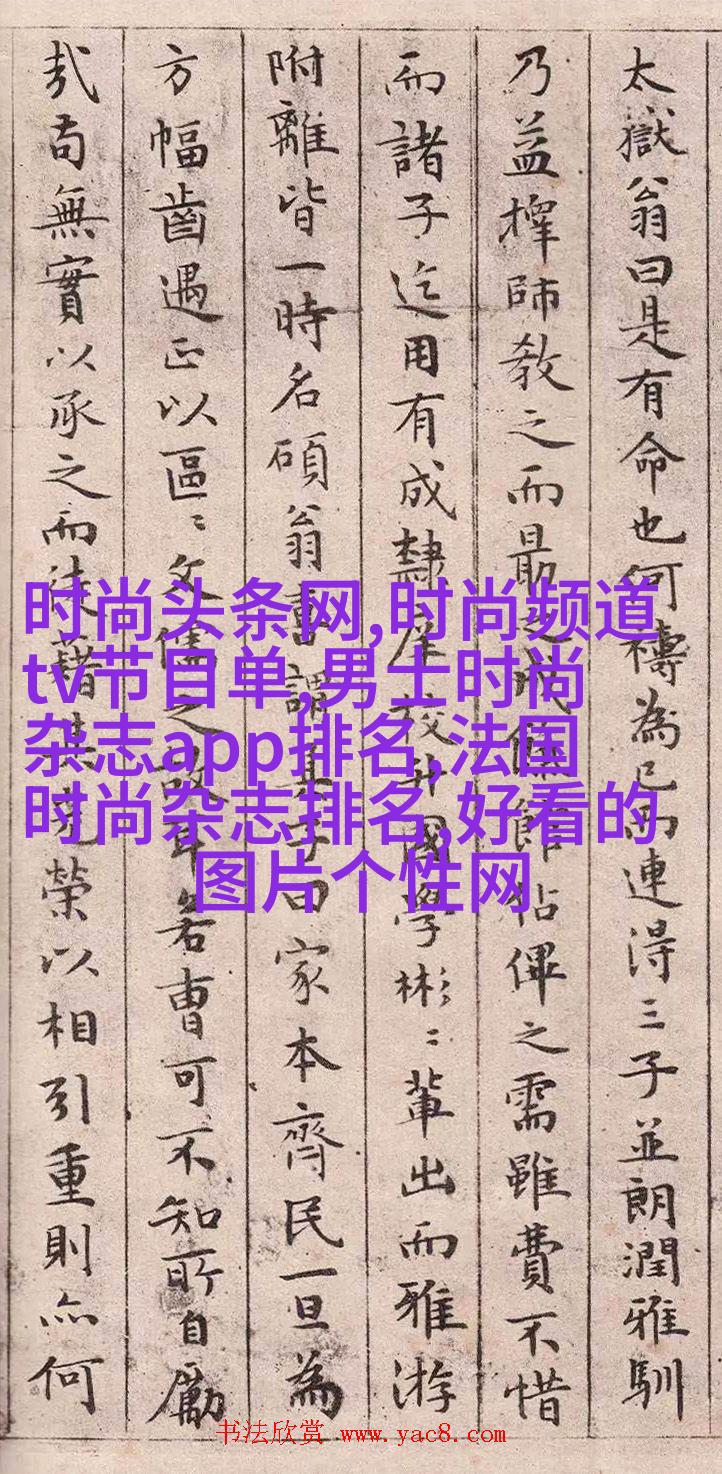 太嶽翁曰是有命也何禱為已而連得三子並朗潤雅馴
乃益擇師教之而最之成館佔俾之需雖費不惜
而諸子迄用有成隸庠校升國學彬〻輩出而雅游
附離皆一時名碩翁嘗謂其子曰家本齊民一旦為
方幅齒遇正以區〻文儒之故耳若曹可不知所自勵
哉苟無實以承之而徒藉其榮以相引重則亦何
时尚头条网,时尚频道
tv节目单,男士时尚
杂志app排名,法国
时尚杂志排名,好看的
图片个性网
书法欣赏 www.yac8.com